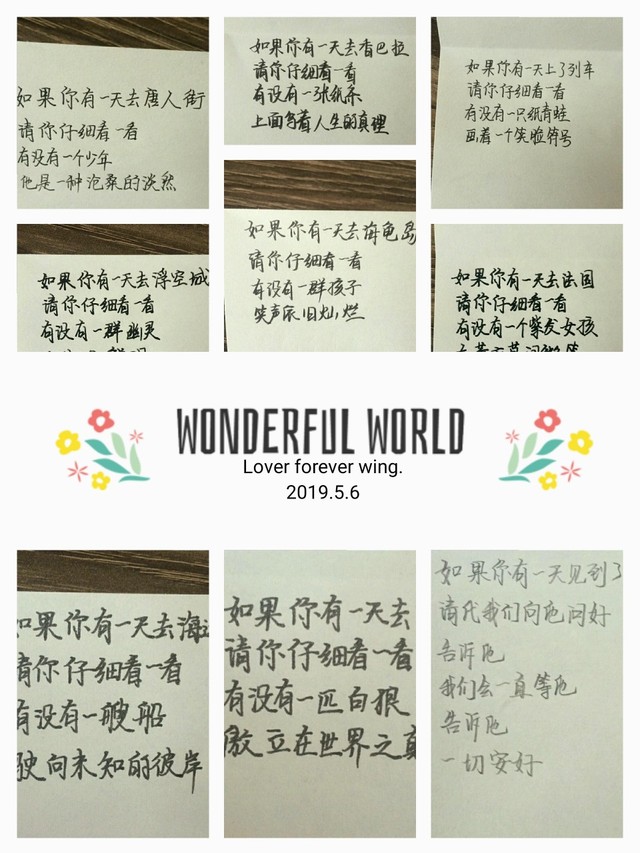 如果你有一天去唐人街
请你仔细看一看
有没有一个少年
他是一种沧桑的淡然
如果你有一天去香巴拉
请你仔细看一看
有没有一张纸条
上面写着人生的真理
如果你有一天上了列车
请你仔细看一看
有没有一只纸青蛙
画着一个笑脸符号
如果你有一天去浮空城
请你仔细看一看
有没有一群幽灵
如果你有一天去海龟岛
请你仔细看一看
有没有一群孩子
笑声依旧灿烂
如果你有一天去法国
请你仔细看一看
有没有一个紫发女孩
WONDERFUL WORLD
Lover forever wing.
2019.5.6
如果你有一天去海
请你仔细看一看
有没有一艘船
驶向未知的彼岸
如果你有一天去
请你仔细看一看
有没有一匹白狼
傲立在世界之
如果你有一天见到了
请代我们向他问好
告诉他
我们会一直等他
告诉他
一切安好